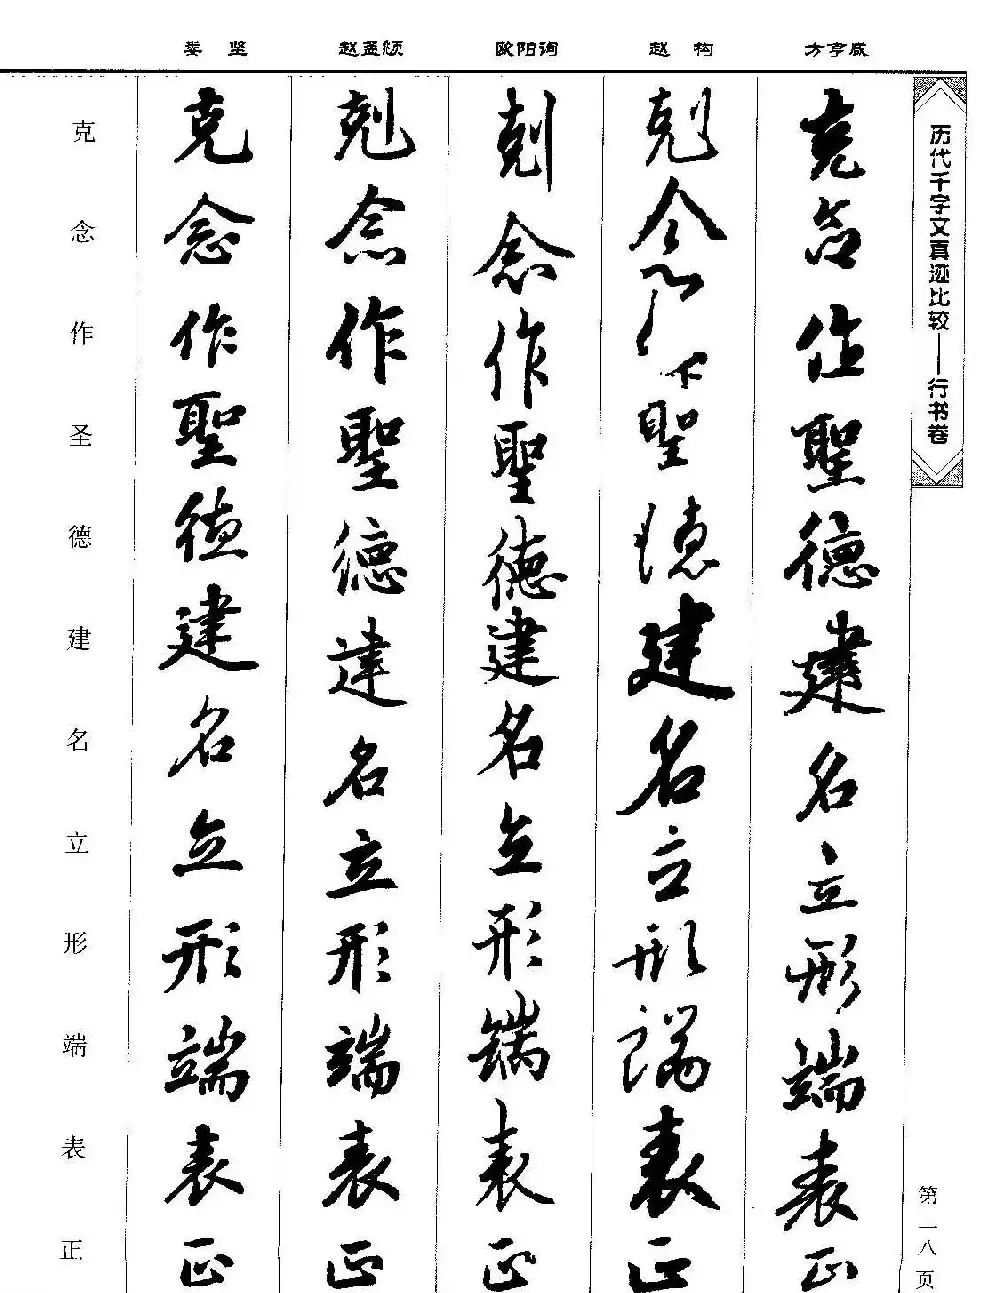 娄 坚 赵孟頫 欧阳询 赵 构 方亨咸
历代千字文真迹比较——行书卷
克念作聖德建名立形端表正
剋念聖德建名立形端表正
剋念作聖德建名立形端表正
剋念作聖德建名立形端表正
克念作聖德建名立形端表正
克念作圣德建名立形端表正
第一八页